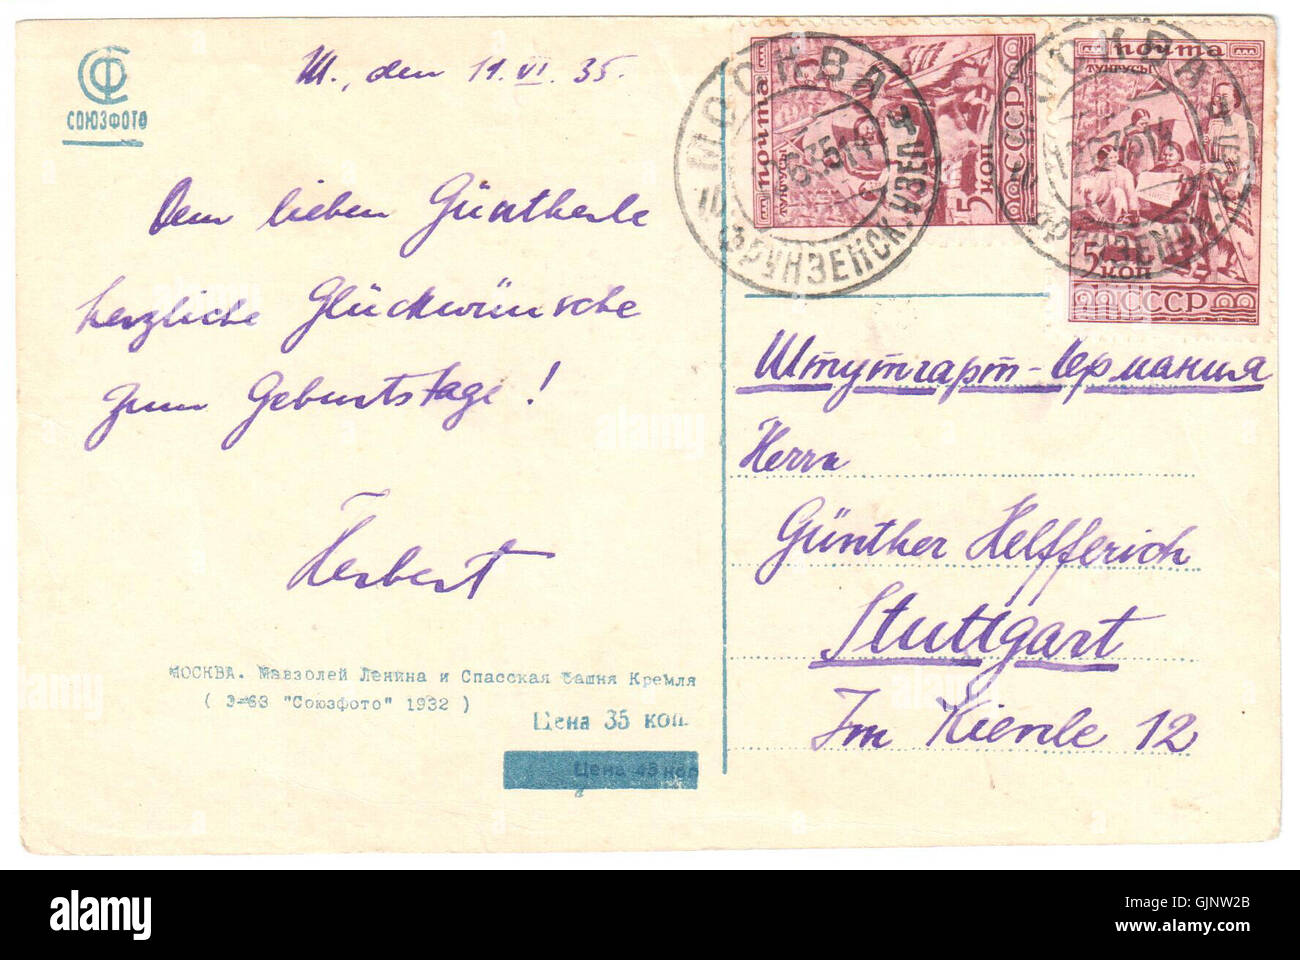 СФ
СОЮЗФОТО
M., den 11. VI. 35.
Dem lieben Güntherle
herzliche Glückwünsche
zum Geburtstage!
Herbert
МОСКВА. Мавзолей Ленина и Спасская башня Кремля
( Э-63 "Союзфото" 1932 )
Цена 35 коп.
Цена 45 коп
почта
ТУНГУСЫ
5 коп
СССР
МОСКВА
почта
ТУНГУСЫ
5 коп
СССР
МОСКВА
Штутгарт - Германия
Herrn
Günther Helfferich
Stuttgart
Im Kienle 12
alamy
alamy
Image ID: GJNW2B
www.alamy.com